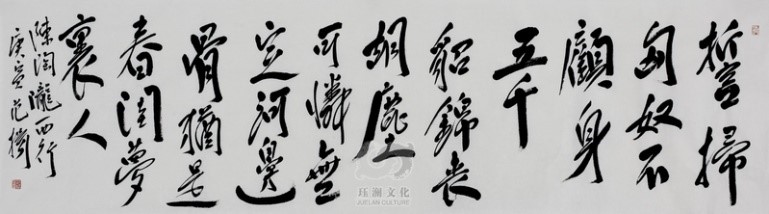 誓掃
匈奴不
顧身
五千
貂錦喪
胡塵
可憐無
定河邊
骨猶是
春閨夢
裏人
陳陶隴西行
庚寅范楊
珏澜文化
JUELAN CULTURE